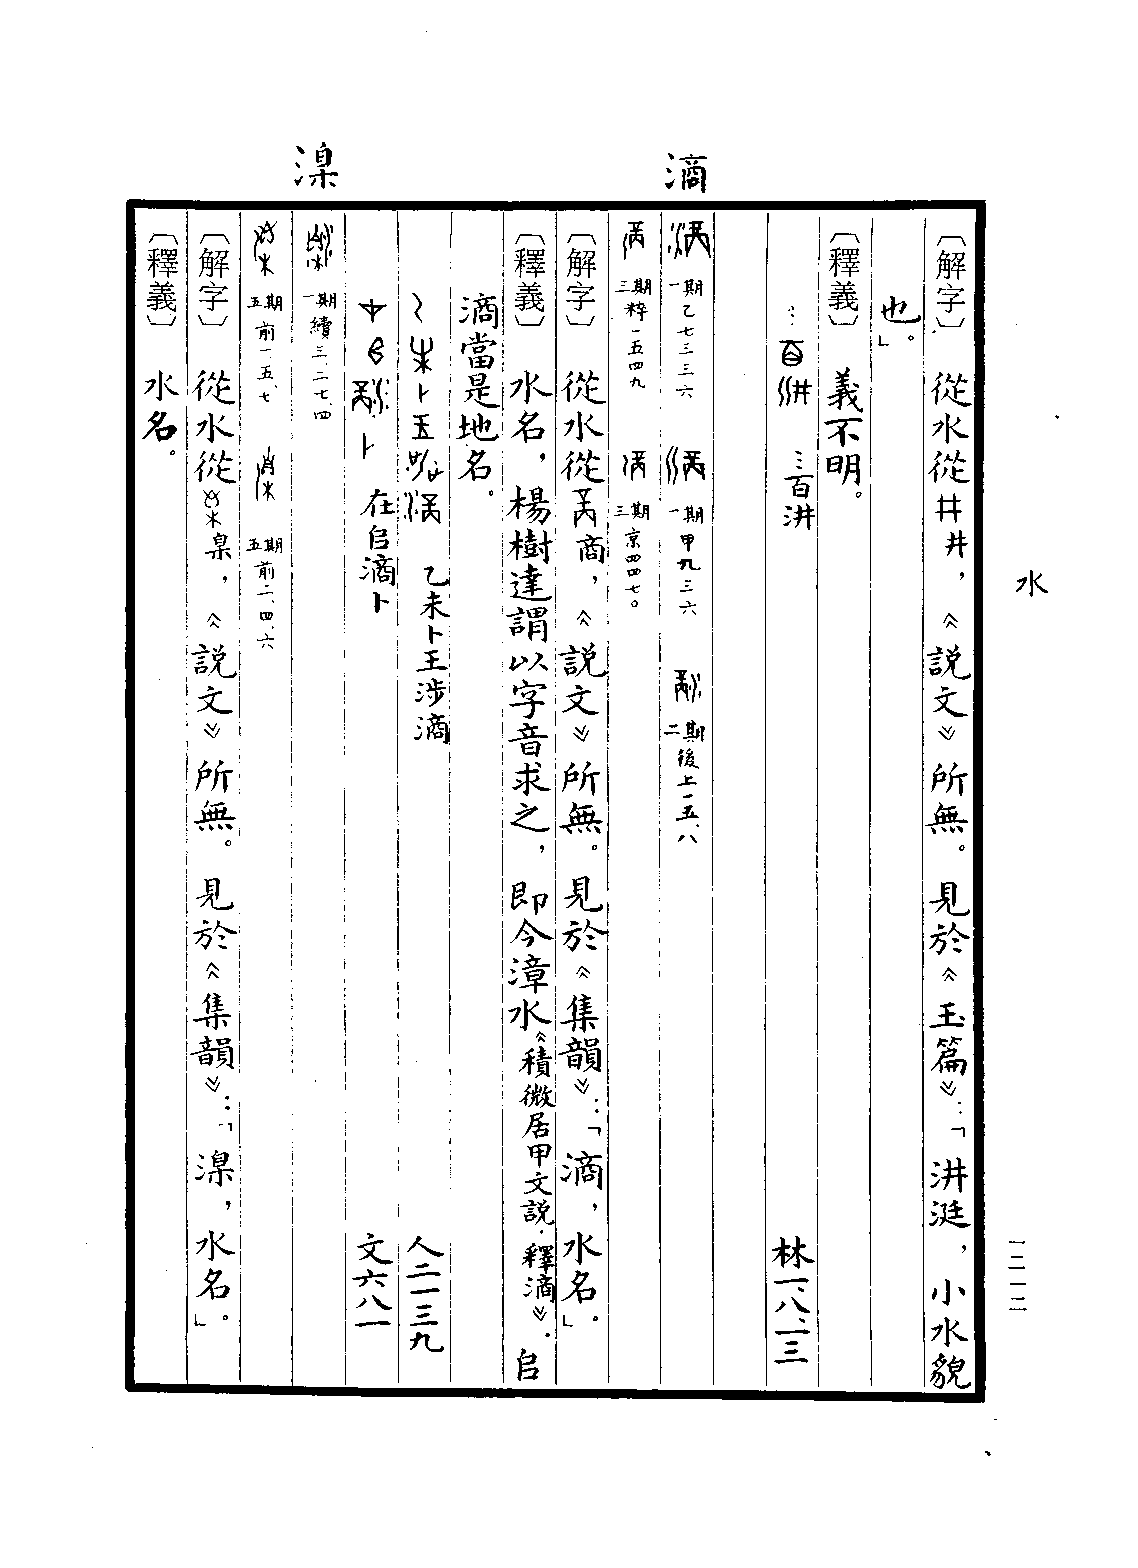 水
一二一二
〔解字〕　從水從井井，《說文》所無。見於《玉篇》：「汫涏，小水貌
也。」
〔釋義〕　義不明。
…百汫　林一、八、一三
滴
一期乙七三三六　一期甲九三六　二期後上一五、八
三期粹一五四九　三期京四四七〇
〔解字〕　從水從商，《說文》所無。見於《集韻》：「滴，水名」。
〔釋義〕　水名，楊樹達謂以字音求之，即今漳水《積微居甲文說·釋滴》。𠂤
滴當是地名。
乙未卜王涉滴　人二一三九
在𠂤滴卜　文六八一
湶
一期續三、二七、四
五期前一、五、七　五期前二、四、六
〔解字〕　從水從臬，《說文》所無。見於《集韻》：「湶，水名」。
〔釋義〕　水名。